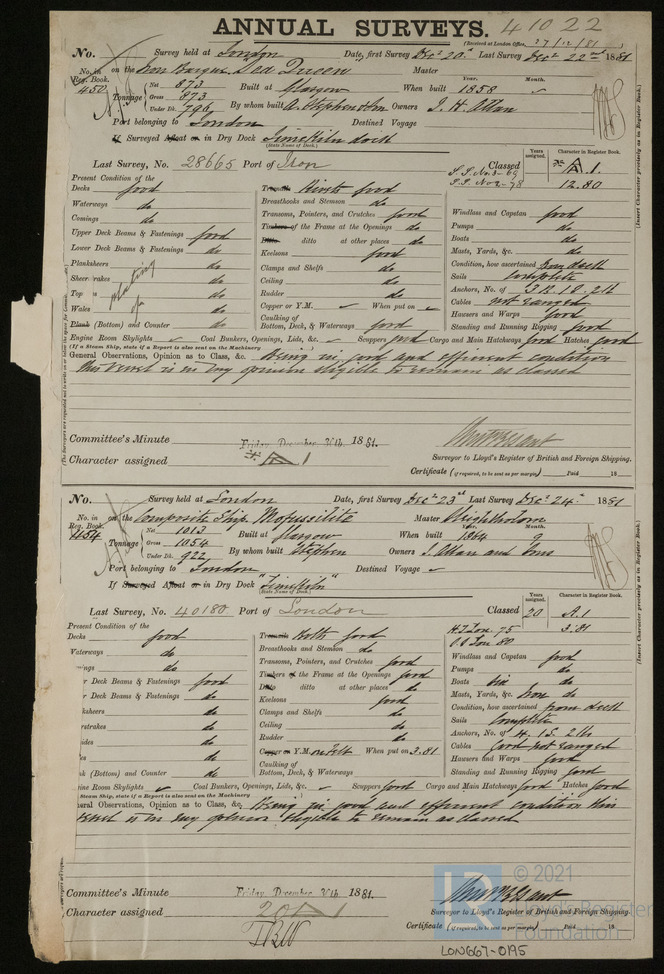 ANNUAL SURVEYS. 41022
(Received at London Office, 27/12/81)
No. Survey held at London Date, first Survey Decr 20th Last Survey Decr 22nd 1881
No. in Reg. Book. 450 on the Iron Barque Master
Tonnage Net 873 Gross 873 Under Dk. 796 Built at Glasgow When built Year. 1858 Month.
By whom built A. Stephen & Son Owners J. H. Allan
Port belonging to London Destined Voyage
If Surveyed Afloat or in Dry Dock Limekiln dock
(State Name of Dock.)
Last Survey, No. 28665 Port of Iron Classed S.S. No. 3-69 S.S. No. 2-78
Years assigned. Character in Register Book. A.1. 12.80
(Insert Character precisely as in Register Book.)
Present Condition of the
Decks good
Waterways do
Comings do
Upper Deck Beams & Fastenings good
Lower Deck Beams & Fastenings do
Planksheers do
Sheerstrakes do
Topsides do
Wales do
plating of
Plank (Bottom) and Counter do
Treenails Rivets good
Breasthooks and Stemson do
Transoms, Pointers, and Crutches good
Timbers of the Frame at the Openings do
Ditto ditto at other places do
Keelsons good
Clamps and Shelfs do
Ceiling do
Rudder do
Copper or Y.M. When put on
Caulking of Bottom, Deck, & Waterways good
Windlass and Capstan good
Pumps do
Boats do
Masts, Yards, &c. do
Condition, how ascertained from deck
Sails complete
Anchors, No. of 3 B. 1 S. 2 K
Cables not ranged
Hawsers and Warps good
Standing and Running Rigging good
Engine Room Skylights Coal Bunkers, Openings, Lids, &c. Scuppers good Cargo and Main Hatchways good Hatches good
(If a Steam Ship, state if a Report is also sent on the Machinery
General Observations, Opinion as to Class, &c. Being in good and efficient condition
this vessel is in my opinion eligible to remain as classed
Committee's Minute Friday December 30th 1881.
Character assigned A 1
Surveyor to Lloyd's Register of British and Foreign Shipping.
Certificate (if required, to be sent as per margin) Paid 18
No. Survey held at London Date, first Survey Decr 23rd Last Survey Decr 24th 1881
No. in Reg. Book. on the Composite Ship Mofussilite Master
Tonnage Net 1013 Gross 1054 Under Dk. 922 Built at Glasgow When built Year. 1864 Month. 9
By whom built Stephen Owners J. Allan and Sons
Port belonging to London Destined Voyage
If Surveyed Afloat or in Dry Dock "Limekiln"
(State Name of Dock.)
Last Survey, No. 40180 Port of London Classed
Years assigned. 20 Character in Register Book. A.1 3.81
(Insert Character precisely as in Register Book.)
Present Condition of the
Decks good
Waterways do
do
Deck Beams & Fastenings good
Deck Beams & Fastenings do
ksheers do
rstrakes do
ides do
do
k (Bottom) and Counter do
Treenails Bolts good
Breasthooks and Stemson do
Transoms, Pointers, and Crutches good
Timbers of the Frame at the Openings good
Ditto ditto at other places do
Keelsons good
Clamps and Shelfs do
Ceiling do
Rudder do
Copper or Y.M. on Felt When put on 3.81
Caulking of Bottom, Deck, & Waterways
Windlass and Capstan good
Pumps do
Boats six do
Masts, Yards, &c. Iron do
Condition, how ascertained from deck
Sails complete
Anchors, No. of
Cables good not ranged
Hawsers and Warps good
Standing and Running Rigging good
ine Room Skylights Coal Bunkers, Openings, Lids, &c. Scuppers good Cargo and Main Hatchways good Hatches good
Steam Ship, state if a Report is also sent on the Machinery
eral Observations, Opinion as to Class, &c. Being in good and efficient condition this
vessel is in my opinion eligible to remain as classed
Committee's Minute Friday December 30th 1881.
Character assigned 20 A 1
Surveyor to Lloyd's Register of British and Foreign Shipping.
Certificate (if required, to be sent as per margin) Paid 18
© 2021
Lloyd's Register
Foundation
LON667-0195